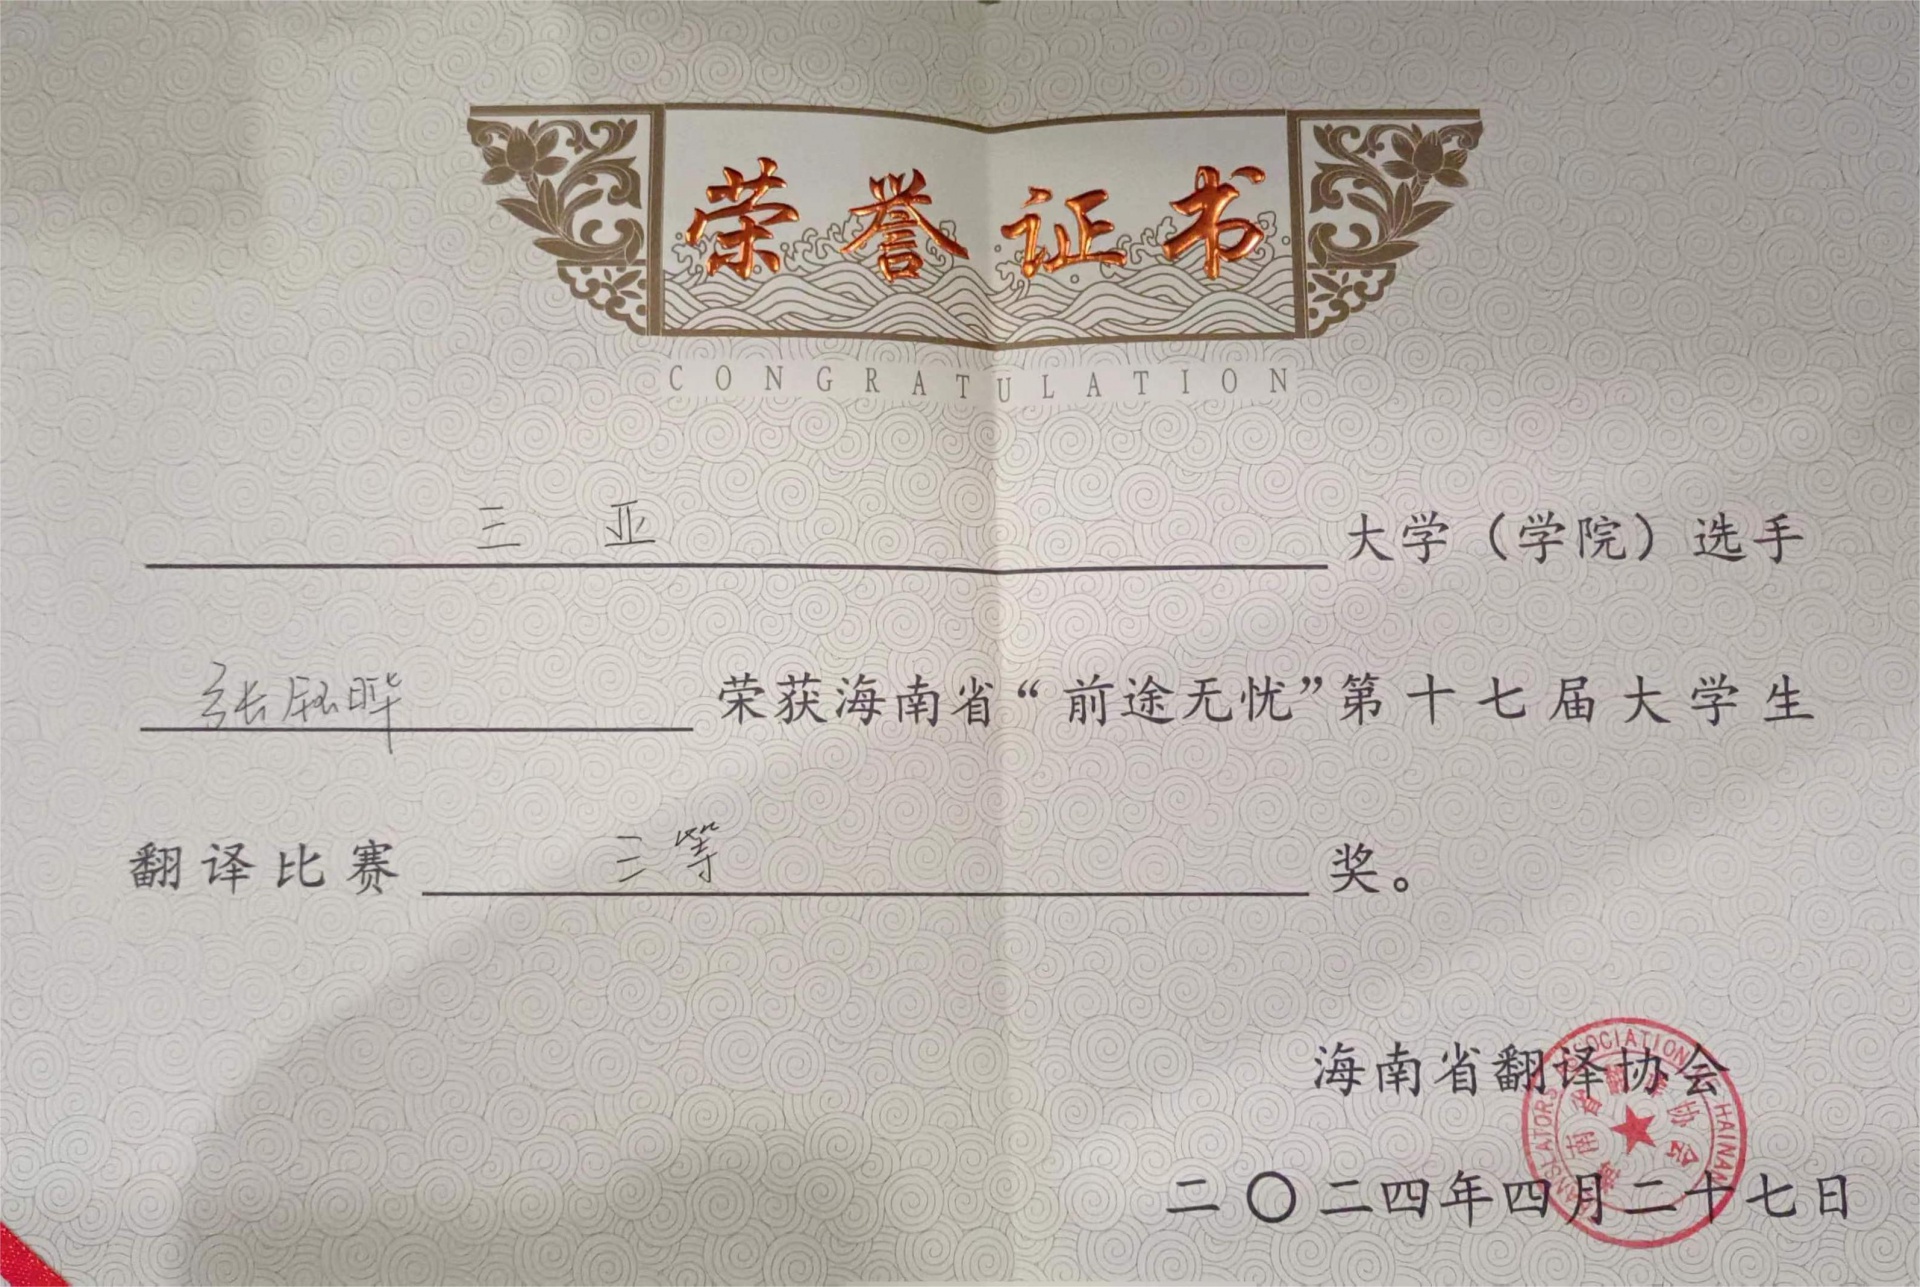 荣誉证书
CONGRATULATION
三亚 大学（学院）选手
张钰晔 荣获海南省“前途无忧”第十七届大学生
翻译比赛 三等 奖。
海南省翻译协会
二〇二四年四月二十七日
海南省翻译协会
TRANSLATORS ASSOCIATION HAINAN